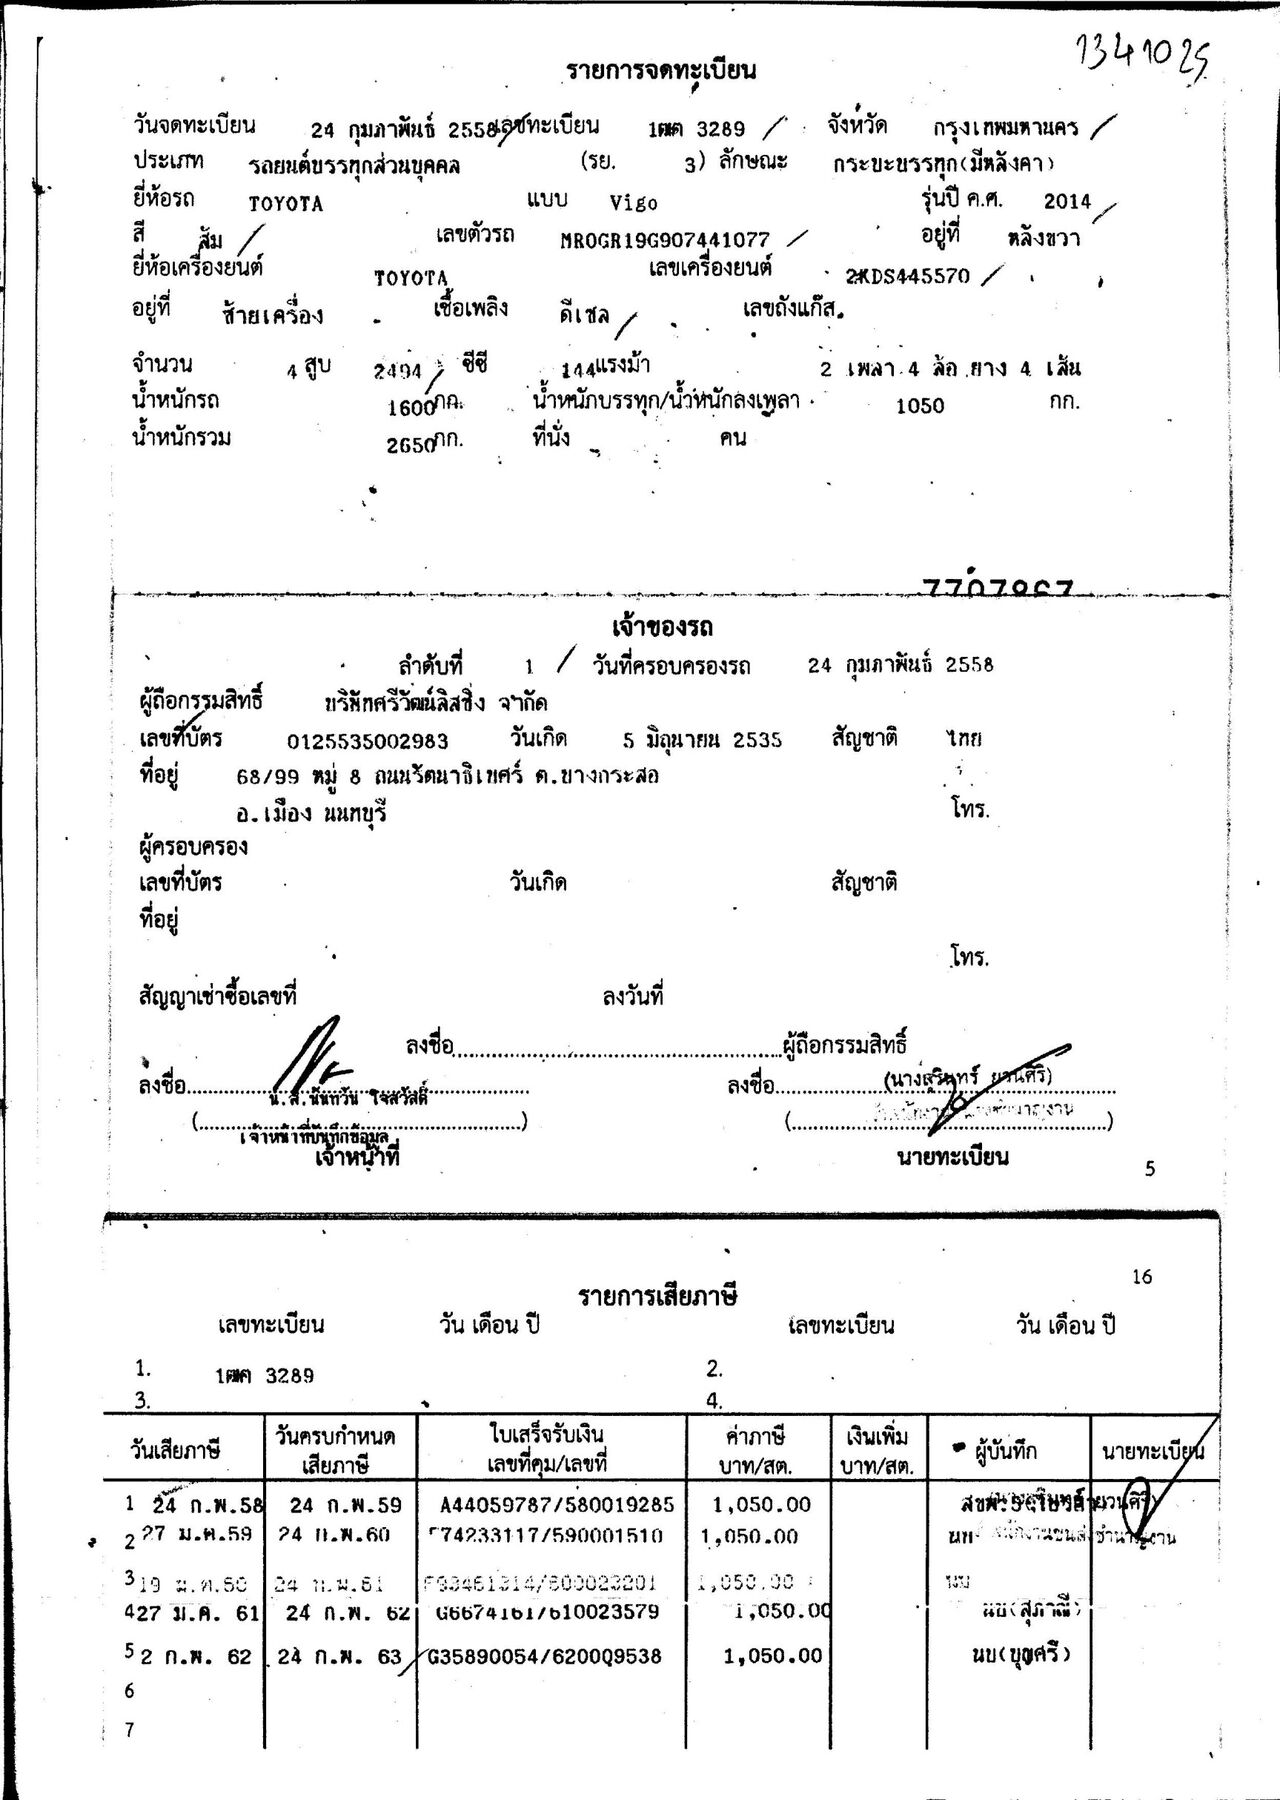 1341025
รายการจดทะเบียน
วันจดทะเบียน 24 กุมภาพันธ์ 2558 เลขทะเบียน 1ฒค 3289 จังหวัด กรุงเทพมหานคร
ประเภท รถยนต์บรรทุกส่วนบุคคล (รย. 3) ลักษณะ กระบะบรรทุก(มีหลังคา)
ยี่ห้อรถ TOYOTA แบบ Vigo รุ่นปี ค.ศ. 2014
สี ส้ม เลขตัวรถ MR0GR19G907441077 อยู่ที่ หลังขวา
ยี่ห้อเครื่องยนต์ TOYOTA เลขเครื่องยนต์ 2KDS445570
อยู่ที่ ซ้ายเครื่อง เชื้อเพลิง ดีเซล เลขถังแก๊ส
จำนวน 4 สูบ 2494 ซีซี 144 แรงม้า 2 เพลา 4 ล้อ ยาง 4 เส้น
น้ำหนักรถ 1600 กก. น้ำหนักบรรทุก/น้ำหนักลงเพลา 1050 กก.
น้ำหนักรวม 2650 กก. ที่นั่ง คน
7707867
เจ้าของรถ
ลำดับที่ 1 วันที่ครอบครองรถ 24 กุมภาพันธ์ 2558
ผู้ถือกรรมสิทธิ์ บริษัทศรีวัฒน์ลิสซิ่ง จำกัด
เลขที่บัตร 0125535002983 วันเกิด 5 มิถุนายน 2535 สัญชาติ ไทย
ที่อยู่ 68/99 หมู่ 8 ถนนรัตนาธิเบศร์ ต.บางกระสอ
อ.เมือง นนทบุรี โทร.
ผู้ครอบครอง
เลขที่บัตร วันเกิด สัญชาติ
ที่อยู่
โทร.
สัญญาเช่าซื้อเลขที่ ลงวันที่
ลงชื่อ ผู้ถือกรรมสิทธิ์
ลงชื่อ น.ส.นันทวัน ใจสวัสดิ์ ลงชื่อ (นางสุรินทร์ ยวนศิริ)
เจ้าหน้าที่บันทึกข้อมูล
เจ้าหน้าที่ นายทะเบียน
5
16
รายการเสียภาษี
เลขทะเบียน วัน เดือน ปี เลขทะเบียน วัน เดือน ปี
1. 1ฒค 3289 2.
3. 4.
วันเสียภาษี วันครบกำหนดเสียภาษี ใบเสร็จรับเงิน เลขที่คุม/เลขที่ ค่าภาษี บาท/สต. เงินเพิ่ม บาท/สต. ผู้บันทึก นายทะเบียน
1 24 ก.พ.58 24 ก.พ.59 A44059787/580019285 1,050.00
2 27 ม.ค.59 24 ก.พ.60 74233117/590001510 1,050.00 นท
3 19 ม.ค.60 24 ก.พ.61 1,050.00 นบ
4 27 ม.ค. 61 24 ก.พ. 62 G66741617610023579 1,050.00 นบ(สุภาณี)
5 2 ก.พ. 62 24 ก.พ. 63 G35890054/620009538 1,050.00 นบ(บุญศรี)
6
7